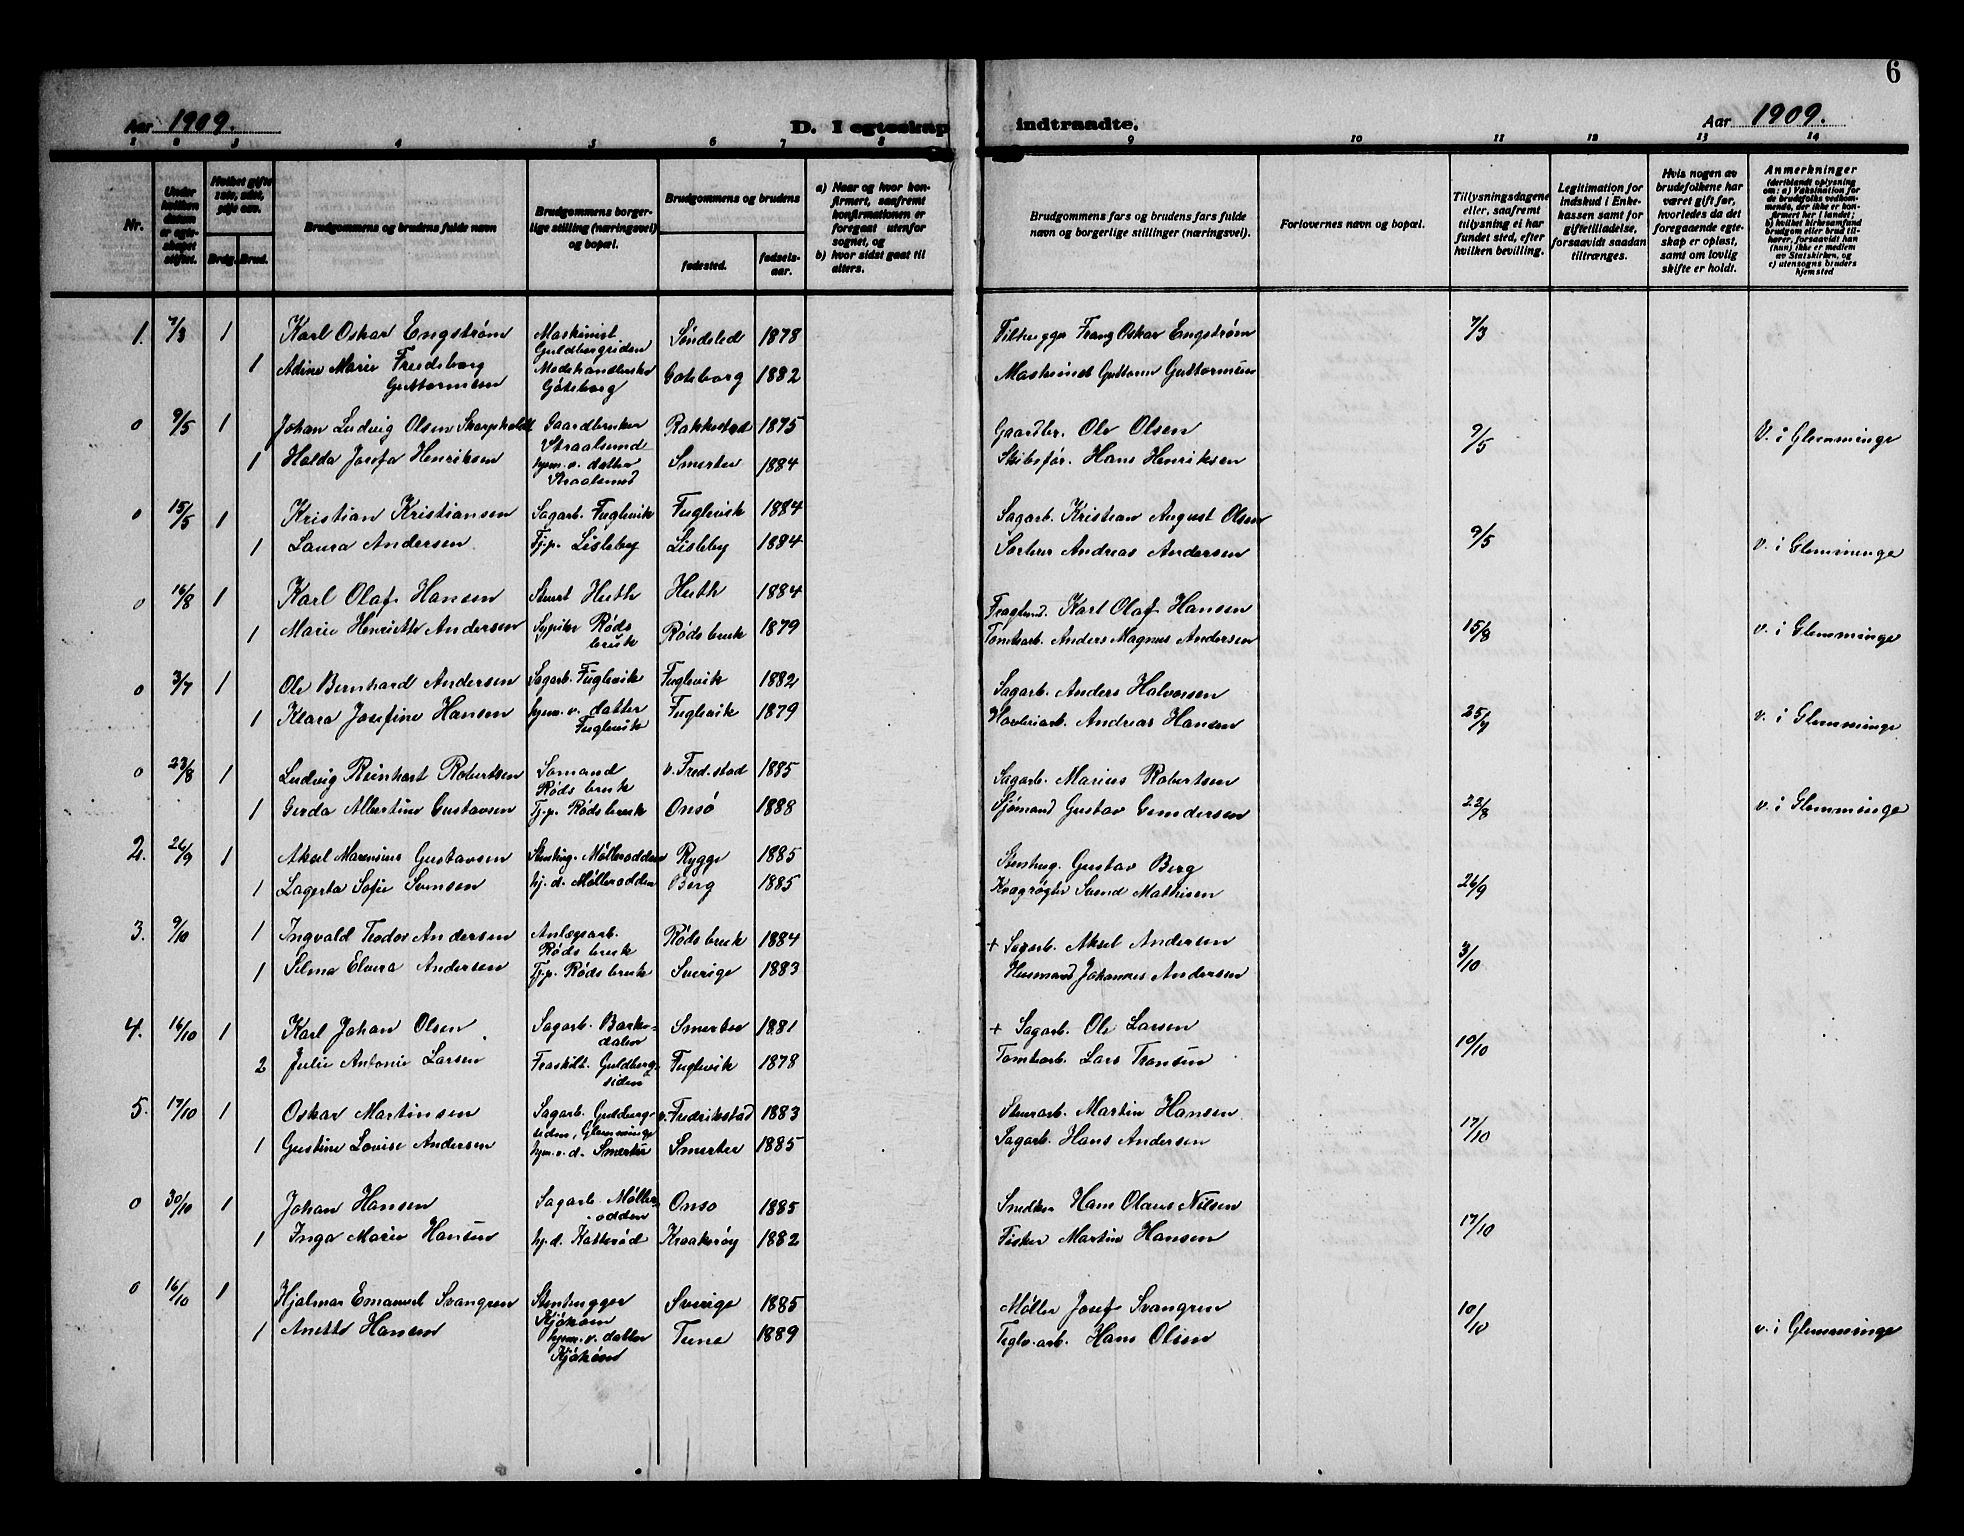 6
Aar 1909.
D. I egteskap indtraadte.
Aar 1909.
1 2 3 4 5 6 7 8 9 10 11 12 13 14
Nr.
Under hvilken datum er egteskapet stiftet.
Hvilket gifte 1ste, 2det, 3dje osv.
Brdg. Brud.
Brudgommens og brudens fulde navn
Brudgommens borgerlige stilling (næringsvei) og bopæl.
Brudgommens og brudens
fødested.
fødselsaar.
a) Naar og hvor konfirmert, saafremt konfirmationen er foregaat utenfor sognet, og
b) hvor sidst gaat til alters.
Brudgommens fars og brudens fars fulde navn og borgerlige stillinger (næringsvei).
Forlovernes navn og bopæl.
Tillysningsdagene eller, saafremt tillysning ei har fundet sted, efter hvilken bevilling.
Legitimation for indskud i Enkekassen samt for giftetilladelse, forsaavidt saadan tiltrænges.
Hvis nogen av brudefolkene har været gift før, hvorledes da det foregaaende egteskap er opløst, samt om lovlig skifte er holdt.
Anmerkninger (deriblandt oplysning om: a) Vaksination for de brudefolks vedkommende, der ikke er konfirmert her i landet; b) hvilket kirkesamfund brudgom eller brud tilhører, forsaavidt han (hun) ikke er medlem av Statskirken, og c) utensogns bruders hjemsted
1. 7/3 1 Karl Oskar Engstrøm Maskinist Guldbergsiden Søndeled 1878 Franz Oskar Engstrøm 7/3
1 Adine Marie Fredsborg Guttormsen Modehandlerske Göteborg Göteborg 1882 Maskinist Guttorm Guttormsen
0 9/5 1 Johan Ludvig Olsen Skarpholdt Gaardbruker Straalsund Rakkestad 1875 Gaardbr. Ole Olsen 9/5 V. i Glemminge
1 Halda Josefa Henriksen hjem. v. datter Straalsund Smertu 1884 Skibsfør. Hans Henriksen
0 15/5 1 Kristian Kristiansen Sagarb. Fuglevik Fuglevik 1884 Sagarb. Kristian August Olsen 9/5
1 Laura Andersen Tj.p. Lisleby Lisleby 1884 Andreas Andersen v. i Glemminge
0 16/8 1 Karl Olaf Hansen Stuert Huth Huth 1884 Karl Olaf Hansen 15/8
1 Marie Henriette Andersen Sypike Røds bruk Røds bruk 1879 Tomtearb. Anders Magnus Andersen v. i Glemminge
0 3/7 1 Ole Bernhard Andersen Sagarb. Fuglevik Fuglevik 1882 Sagarb. Anders Halvorsen
1 Klara Josefine Hansen hjem. v. datter Fuglevik Fuglevik 1879 Høvleriarb. Andreas Hansen 25/7 v. i Glemminge
0 23/8 1 Ludvig Reinhart Robertsen Sømand Røds bruk v. Fred.stad 1885 Sagarb. Marius Robertsen
1 Gerda Albertine Gustavsen Tj.p. Røds bruk Onsø 1888 Sjømand Gustav Gundersen 22/8 v. i Glemminge
2. 26/9 1 Aksel Marensius Gustavsen Stenhug. Mølleodden Rygge 1885 Stenhug. Gustav Berg
1 Lagerta Sofie Svensen hj. d. Mølleodden Berg 1885 Svend Mathisen 26/9
3. 9/10 1 Ingvald Teodor Andersen Anlægsarb. Røds bruk Røds bruk 1884 + Sagarb. Aksel Andersen 3/10
1 Selma Elvera Andersen Tj.p. Røds bruk Sverige 1883 Husmand Johannes Andersen
4. 16/10 1 Karl Johan Olsen Sagarb. Barkedalen Smertu 1881 + Sagarb. Ole Larsen
2 Julie Antonie Larsen Fraskilt. Guldbergsiden Fuglevik 1878 Tomtearb. Lars Transen 10/10
5. 17/10 1 Oskar Martinsen Sagarb. Guldbergsiden, Glemminge v. Fredrikstad 1883 Stuerarb. Martin Hansen 17/10
1 Gustine Louise Andersen hjm. v. d. Smertu Smertu 1885 Sagarb. Hans Andersen
0 30/10 1 Johan Hansen Sagarb. Mølleodden Onsø 1885 Snedker Hans Olaus Nilsen 17/10
1 Inga Marie Hansen hj. d. Katterød Kraakerøy 1882 Fisker Martin Hansen
0 16/10 1 Hjalmar Emanuel Svangren Stenhugger Kjøkøen Sverige 1885 Møller Josef Svangren 10/10
1 Anette Hansen hjem. v. datter Kjøkøen Tune 1889 Teglv.arb. Hans Olsen v. i Glemminge